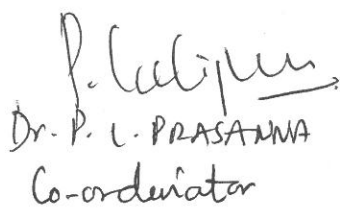 Dr. P. L. PRASANNA
Co-ordinator